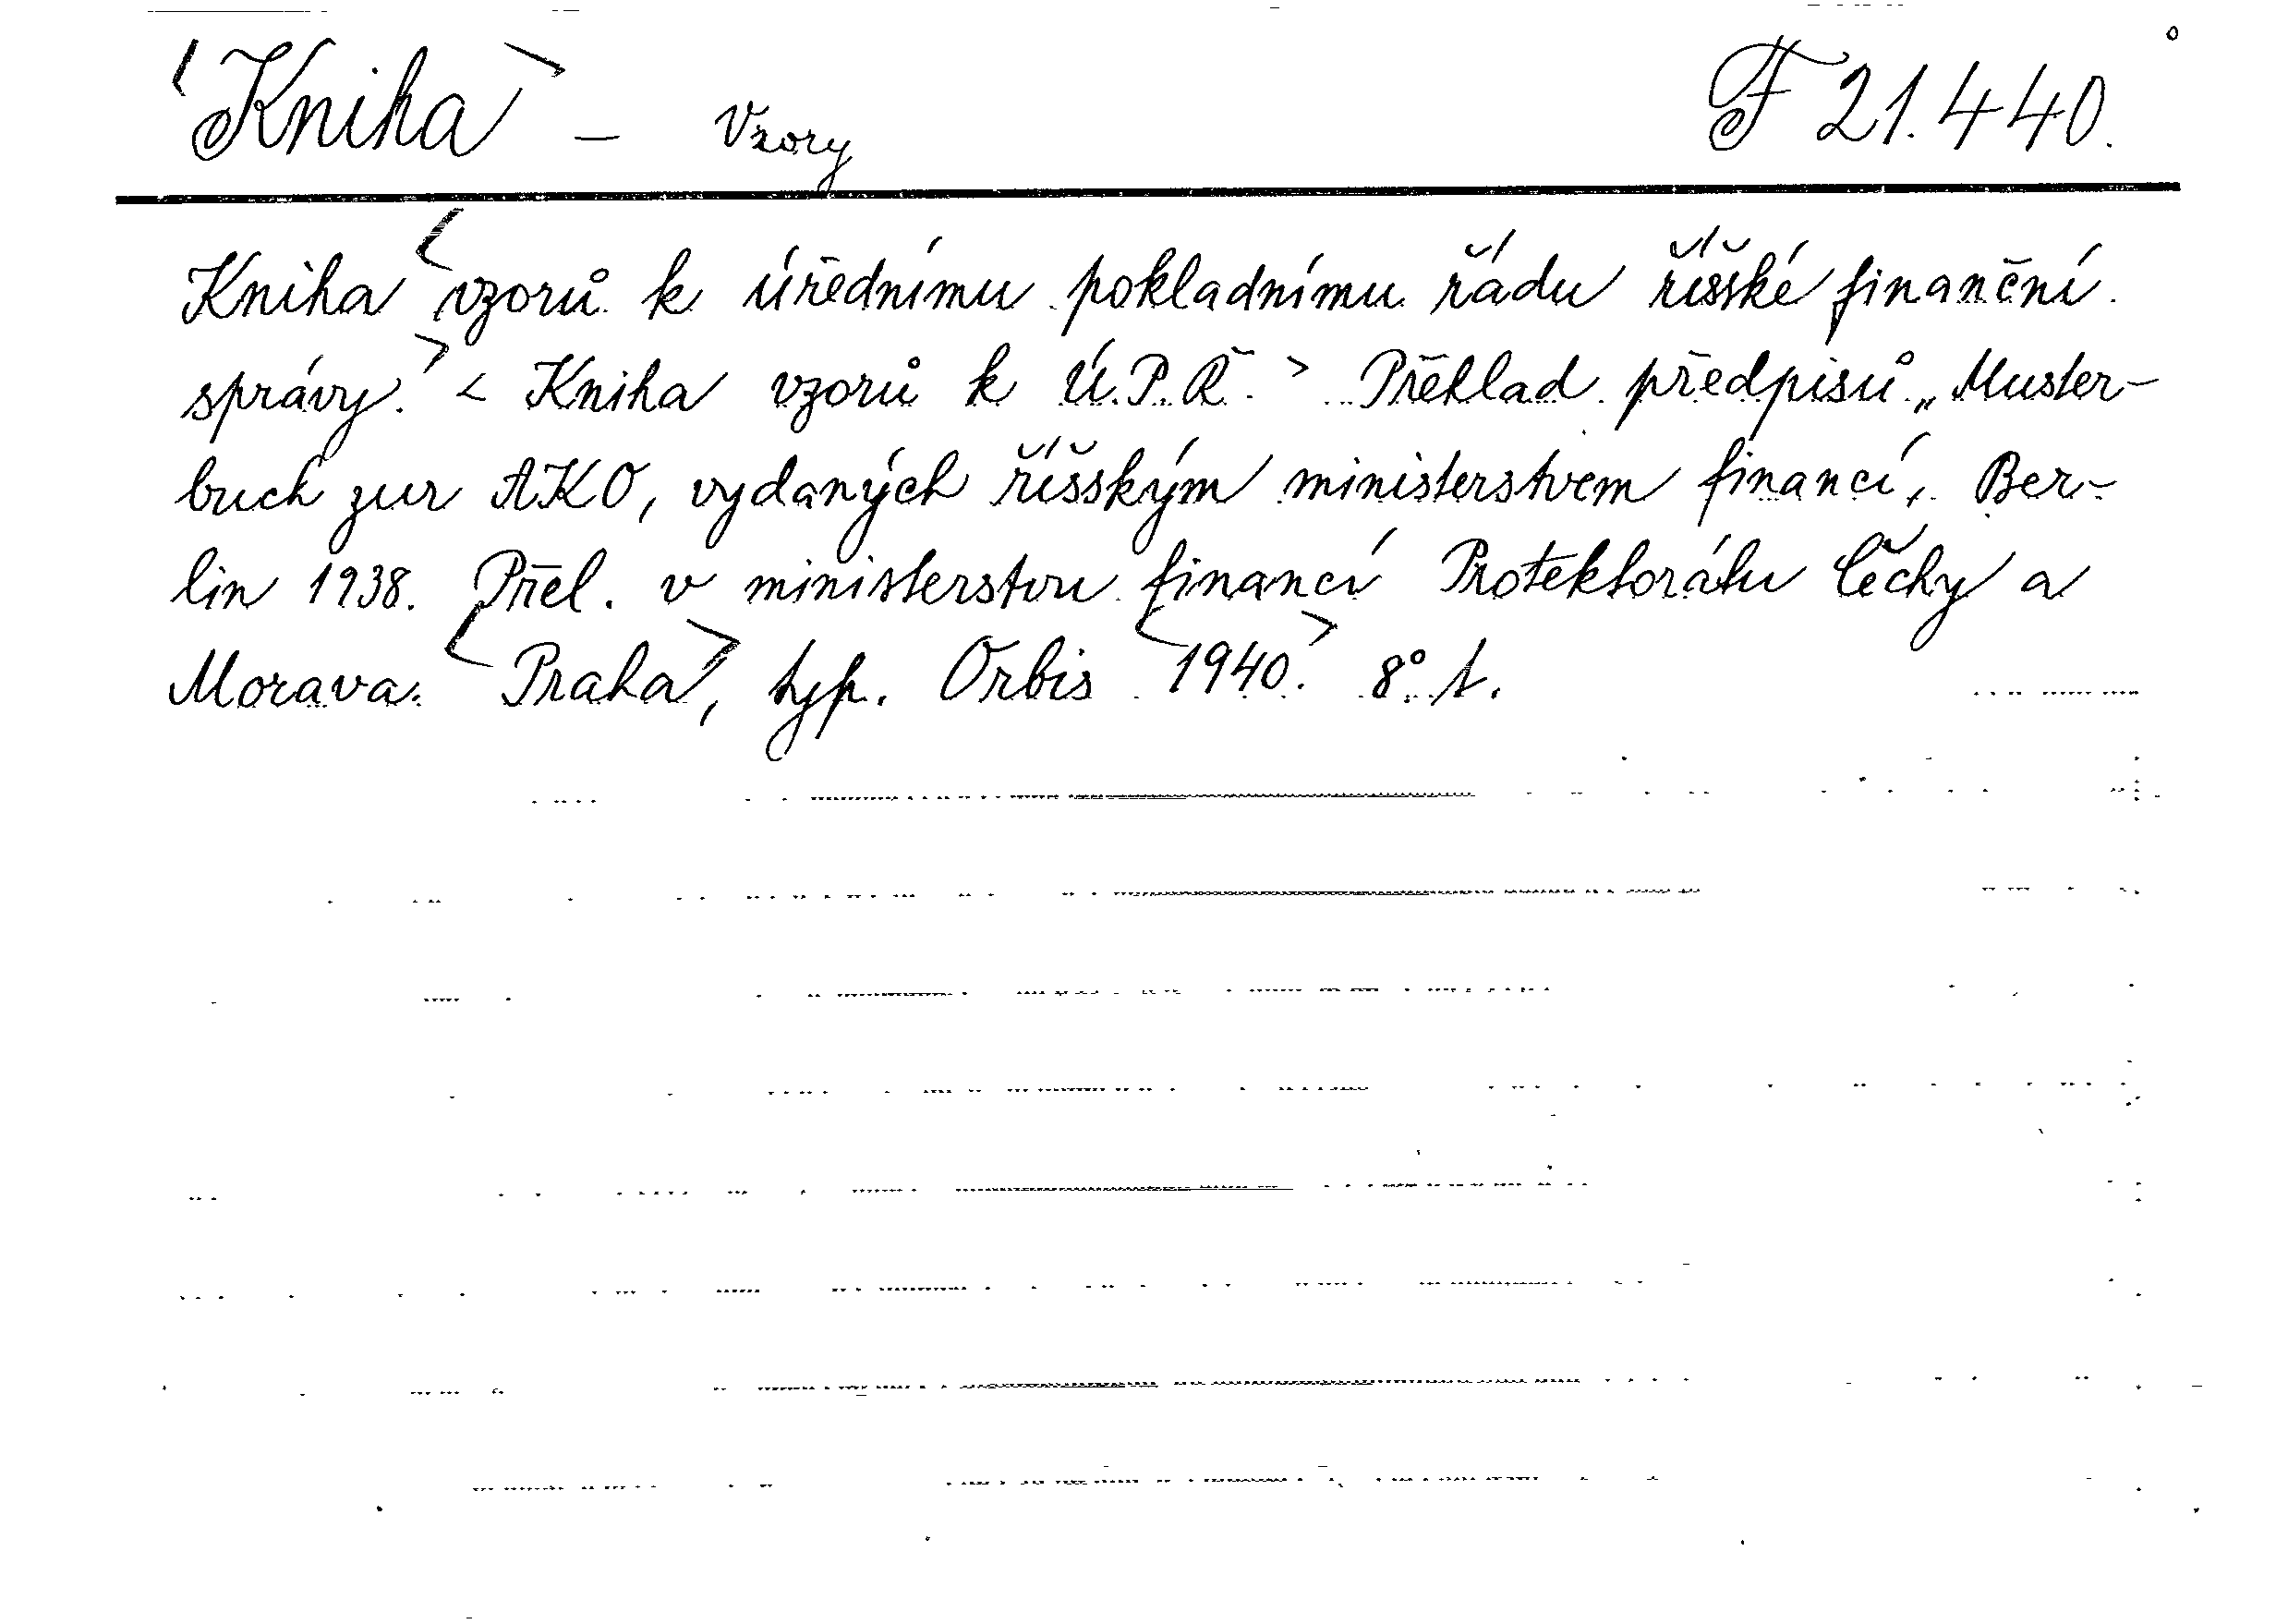 <Kniha> – Vzory F 21.440.
Kniha <vzorů k úřednímu pokladnímu řádu říšské finanční
správy.> < Kniha vzorů k Ú.P.Ř. > Překlad předpisů „Muster-
buch zur AKO, vydaných říšským ministerstvem financí, Ber-
lin 1938. Přel. v ministerstvu financí Protektorátu Čechy a
Morava. <Praha>, typ. Orbis <1940.> 8° t.